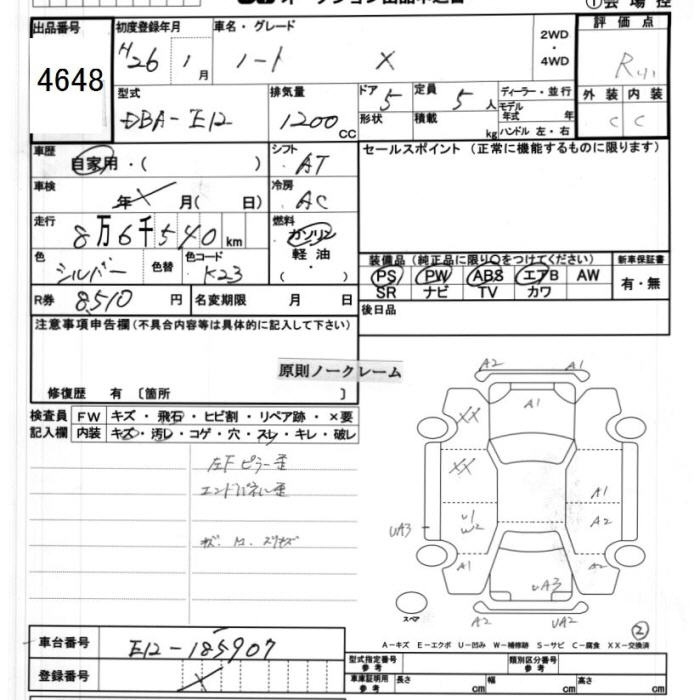 ① 会場控
出品番号
4648
初度登録年月
H26 1月
車名・グレード
ノート X
2WD
・
4WD
評価点
R
外装 内装
C C
型式
DBA-E12
排気量
1200 CC
ドア 5
定員 5人
形状
積載 kg
ディーラー・並行
モデル年式 年
ハンドル 左・右
車歴
自家用・( )
シフト
AT
セールスポイント (正常に機能するものに限ります)
車検
年 X 月( 日)
冷房
AC
走行
8万6千540 km
燃料
ガソリン
軽油
( )
色
シルバー
色替
色コード
K23
装備品 (純正品に限り○をつけてください)
新車保証書
PS PW ABS エアB AW
SR ナビ TV カワ
有・無
R券 8510 円
名変期限 月 日
後日品
注意事項申告欄 (不具合内容等は具体的に記入して下さい)
原則ノークレーム
修復歴 有 〔箇所 〕
検査員記入欄
FW キズ・飛石・ヒビ割・リペア跡・×要
内装 キズ・汚レ・コゲ・穴・スレ・キレ・破レ
左Fピラー歪
エンドパネル歪
A2 A1
A1
XX
XX
A1
U1
W2
A2
UA3
A1
A2
UA3
スペア
A2 UA2
②
A-キズ E-エクボ U-凹み W-補修跡 S-サビ C-腐食 XX-交換済
車台番号
E12-185907
登録番号
X
型式指定番号 参考
類別区分番号 参考
車庫証明用 参考
長さ cm
幅 cm
高さ cm